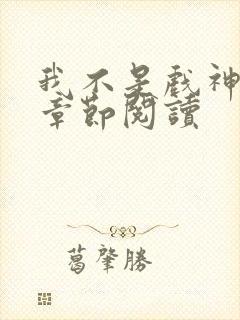 我不是戲神
章節閱讀
葛肇勝